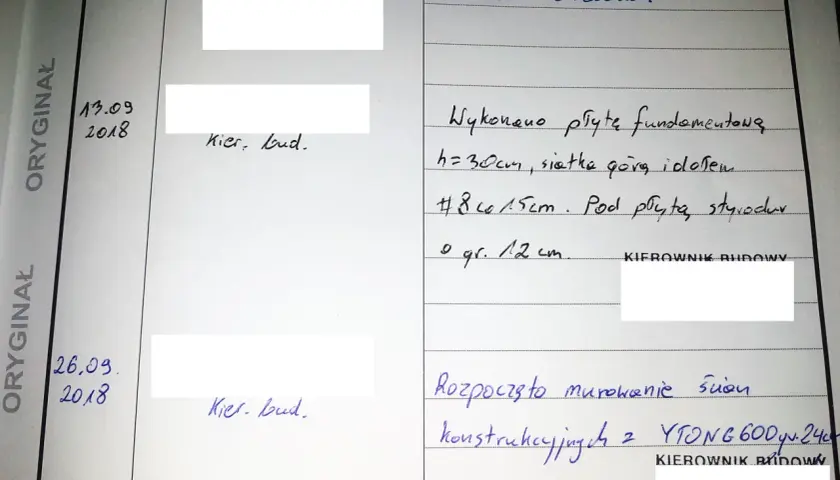 ORYGINAŁ
13.09
2018
Kier. bud.
Wykonano płytę fundamentową
h=30cm, siatka górą i dołem
#8 co 15cm. Pod płytą styrodur
o gr. 12 cm.
KIEROWNIK BUDOWY
ORYGINAŁ
26.09.
2018
Kier. bud.
Rozpoczęto murowanie ścian
konstrukcyjnych z YTONG 600 gr. 24cm
KIEROWNIK BUDOWY